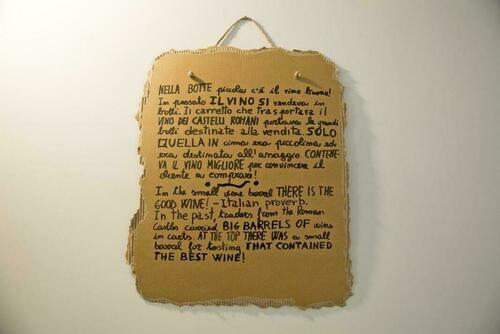 NELLA BOTTE piccola c'è il vino buono!
In passato IL VINO SI vendeva in
botti. Il carretto che trasportava il
VINO DEI CASTELLI ROMANI portava le grandi
botti destinate alla vendita. SOLO
QUELLA IN cima era piccolina ed
era destinata all'assaggio CONTENE-
VA IL VINO MIGLIORE per convincere il
cliente a comprare!
In the small wine barrel THERE IS THE
GOOD WINE! - Italian proverb.
In the past, traders from the Roman
Castles carried BIG BARRELS OF wine
in carts. AT THE TOP THERE WAS a small
barrel for tasting THAT CONTAINED
THE BEST WINE!